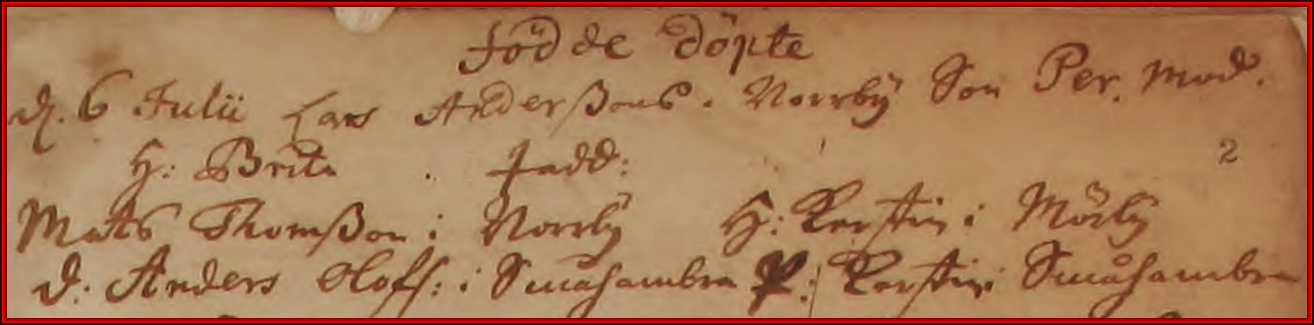 födde döpte
d. 6 Julii Lars Anderßons. Norrbÿ Son Per. Mod.
H: Brita . fadd: 2
Mats Thomßon i Norrbÿ H: Kerstin i Mörbÿ
d: Anders Olofs: i Småhambra P: Kerstin i Småhambra